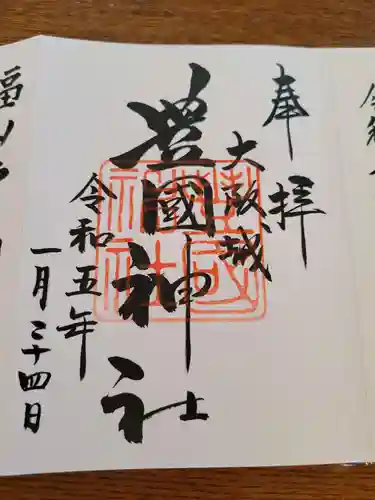 奉拝
大阪城
豊國神社
令和五年
一月二十四日